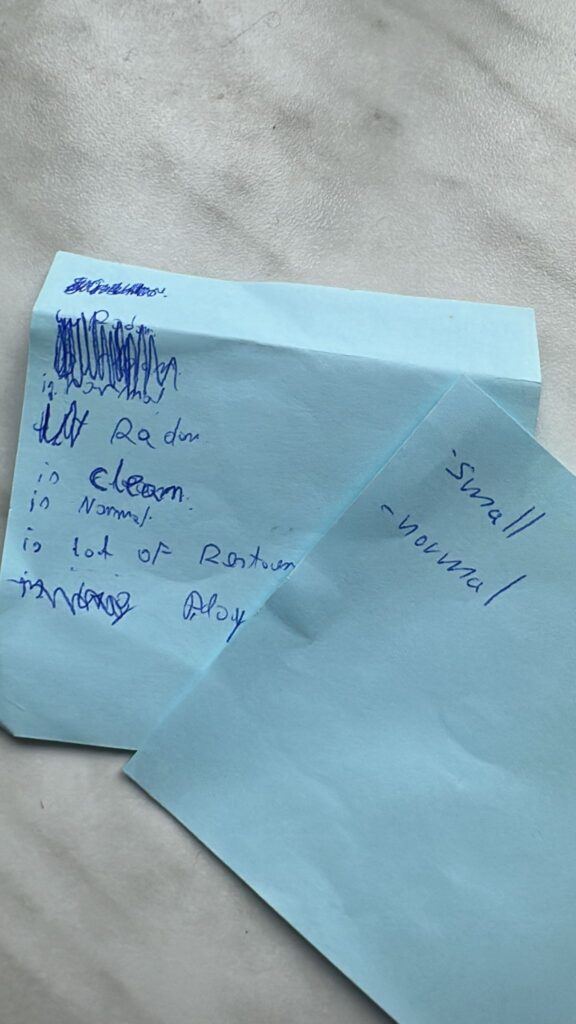 Radom
is normal
Radom
is clean.
is Normal.
is lot of Restauran
Play
-small
-normal